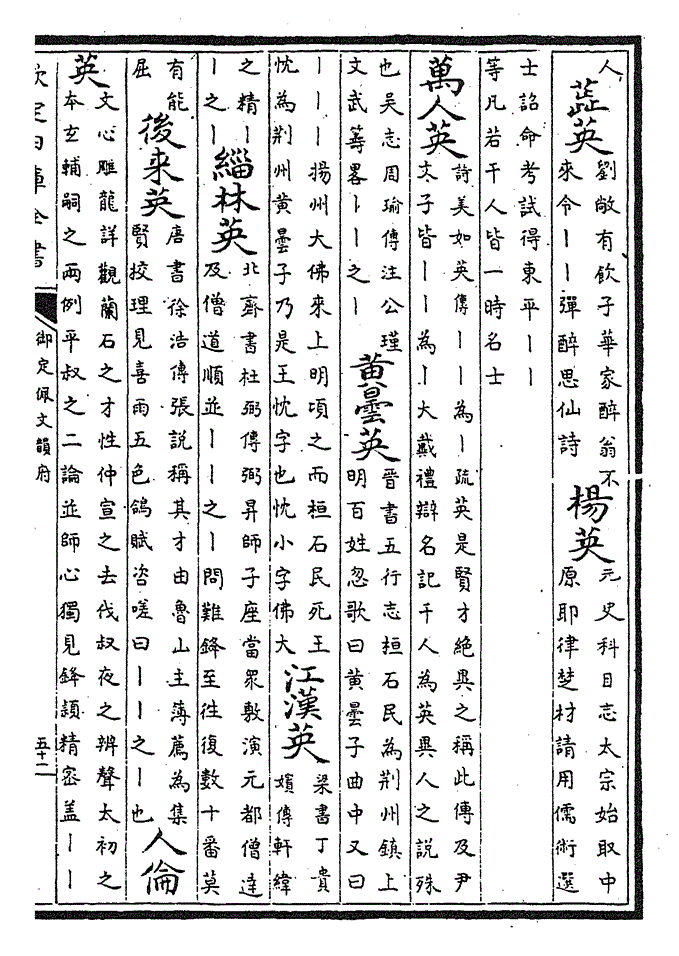 人 蕋英 劉敞有飲子華家醉翁不
來令丨丨彈醉思仙詩 楊英 元史科目志太宗始取中
原耶律楚材請用儒術選
士詔命考試得東平丨丨
等凡若干人皆一時名士
萬人英 詩美如英傳丨丨為丨疏英是賢才絶異之稱此傳及尹
文子皆丨丨為丨大戴禮辯名記千人為英異人之說殊
也吳志周瑜傳注公瑾
文武籌畧丨丨之丨 黄曇英 晋書五行志桓石民為荆州鎮上
明百姓忽歌曰黄曇子曲中又曰
丨丨丨揚州大佛來上明頃之而桓石民死王
忱為荆州黄曇子乃是王忱字也忱小字佛大 江漢英 梁書丁貴
嬪傳軒緯
之精丨
丨之丨 緇林英 北齊書杜弼傳弼昇師子座當衆敷演元都僧達
及僧道順並丨丨之丨問難鋒至往復數十番莫
有能
屈 後来英 唐書徐浩傳張說稱其才由魯山主薄薦為集
賢校理見喜雨五色鴿賦咨嗟曰丨丨之丨也 人倫
英 文心雕龍詳觀蘭石之才性仲宣之去伐叔夜之辨聲太初之
本玄輔嗣之兩例平叔之二論並師心獨見鋒頴精密盖丨丨
欽定四庫全書
御定佩文韻府
五十二